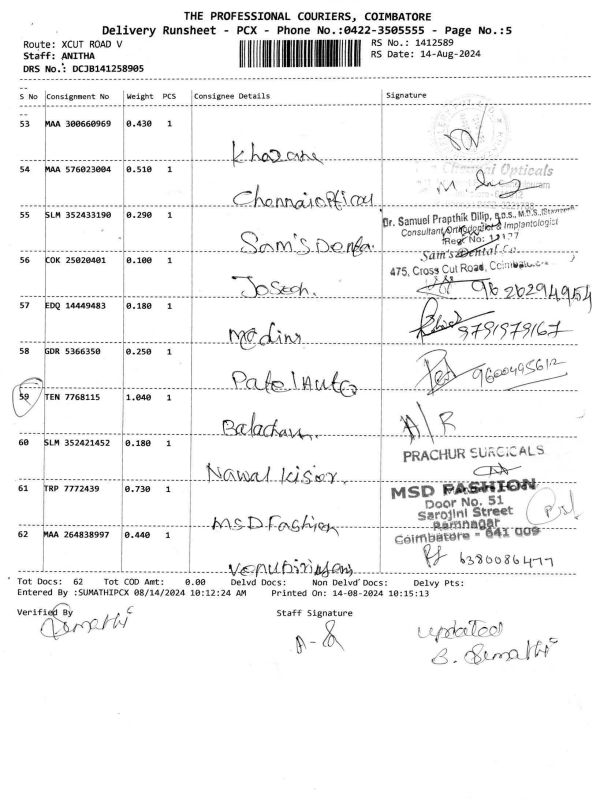 THE PROFESSIONAL COURIERS, COIMBATORE
Delivery Runsheet - PCX - Phone No.:0422-3505555 - Page No.:5
Route: XCUT ROAD V
RS No.: 1412589
Staff: ANITHA
RS Date: 14-Aug-2024
DRS No.: DCJB141258905
S No Consignment No Weight PCS Consignee Details Signature
53 MAA 300660969 0.430 1
Khazana
54 MAA 576023004 0.510 1
Chennai Opticals
Chennai optical
55 SLM 352433190 0.290 1
Dr. Samuel Prapthik Dilip, B.D.S., M.D.S.
Consultant Orthodontist & Implantologist
Reg. No: 11177
Sam's Denta
Sam's Dental
56 COK 25020401 0.100 1
475, Cross Cut Road, Coimbatore
Joseph.
9626294954
57 EDQ 14449483 0.180 1
9791979167
58 GDR 5366350 0.250 1
9600495612
Patel Auto
59 TEN 7768115 1.040 1
A/R
60 SLM 352421452 0.180 1
PRACHUR SURGICALS
Nawal Kisor.
61 TRP 7772439 0.730 1
MSD FASHION
Door No. 51
Sarojini Street
Ramnagar
Coimbatore - 641 009
MSD Fashion
62 MAA 264838997 0.440 1
6380086477
Tot Docs: 62 Tot COD Amt: 0.00 Delvd Docs: Non Delvd Docs: Delvy Pts:
Entered By :SUMATHIPCX 08/14/2024 10:12:24 AM Printed On: 14-08-2024 10:15:13
Verified By
Staff Signature
Sumathi
updated
B. Sumathi